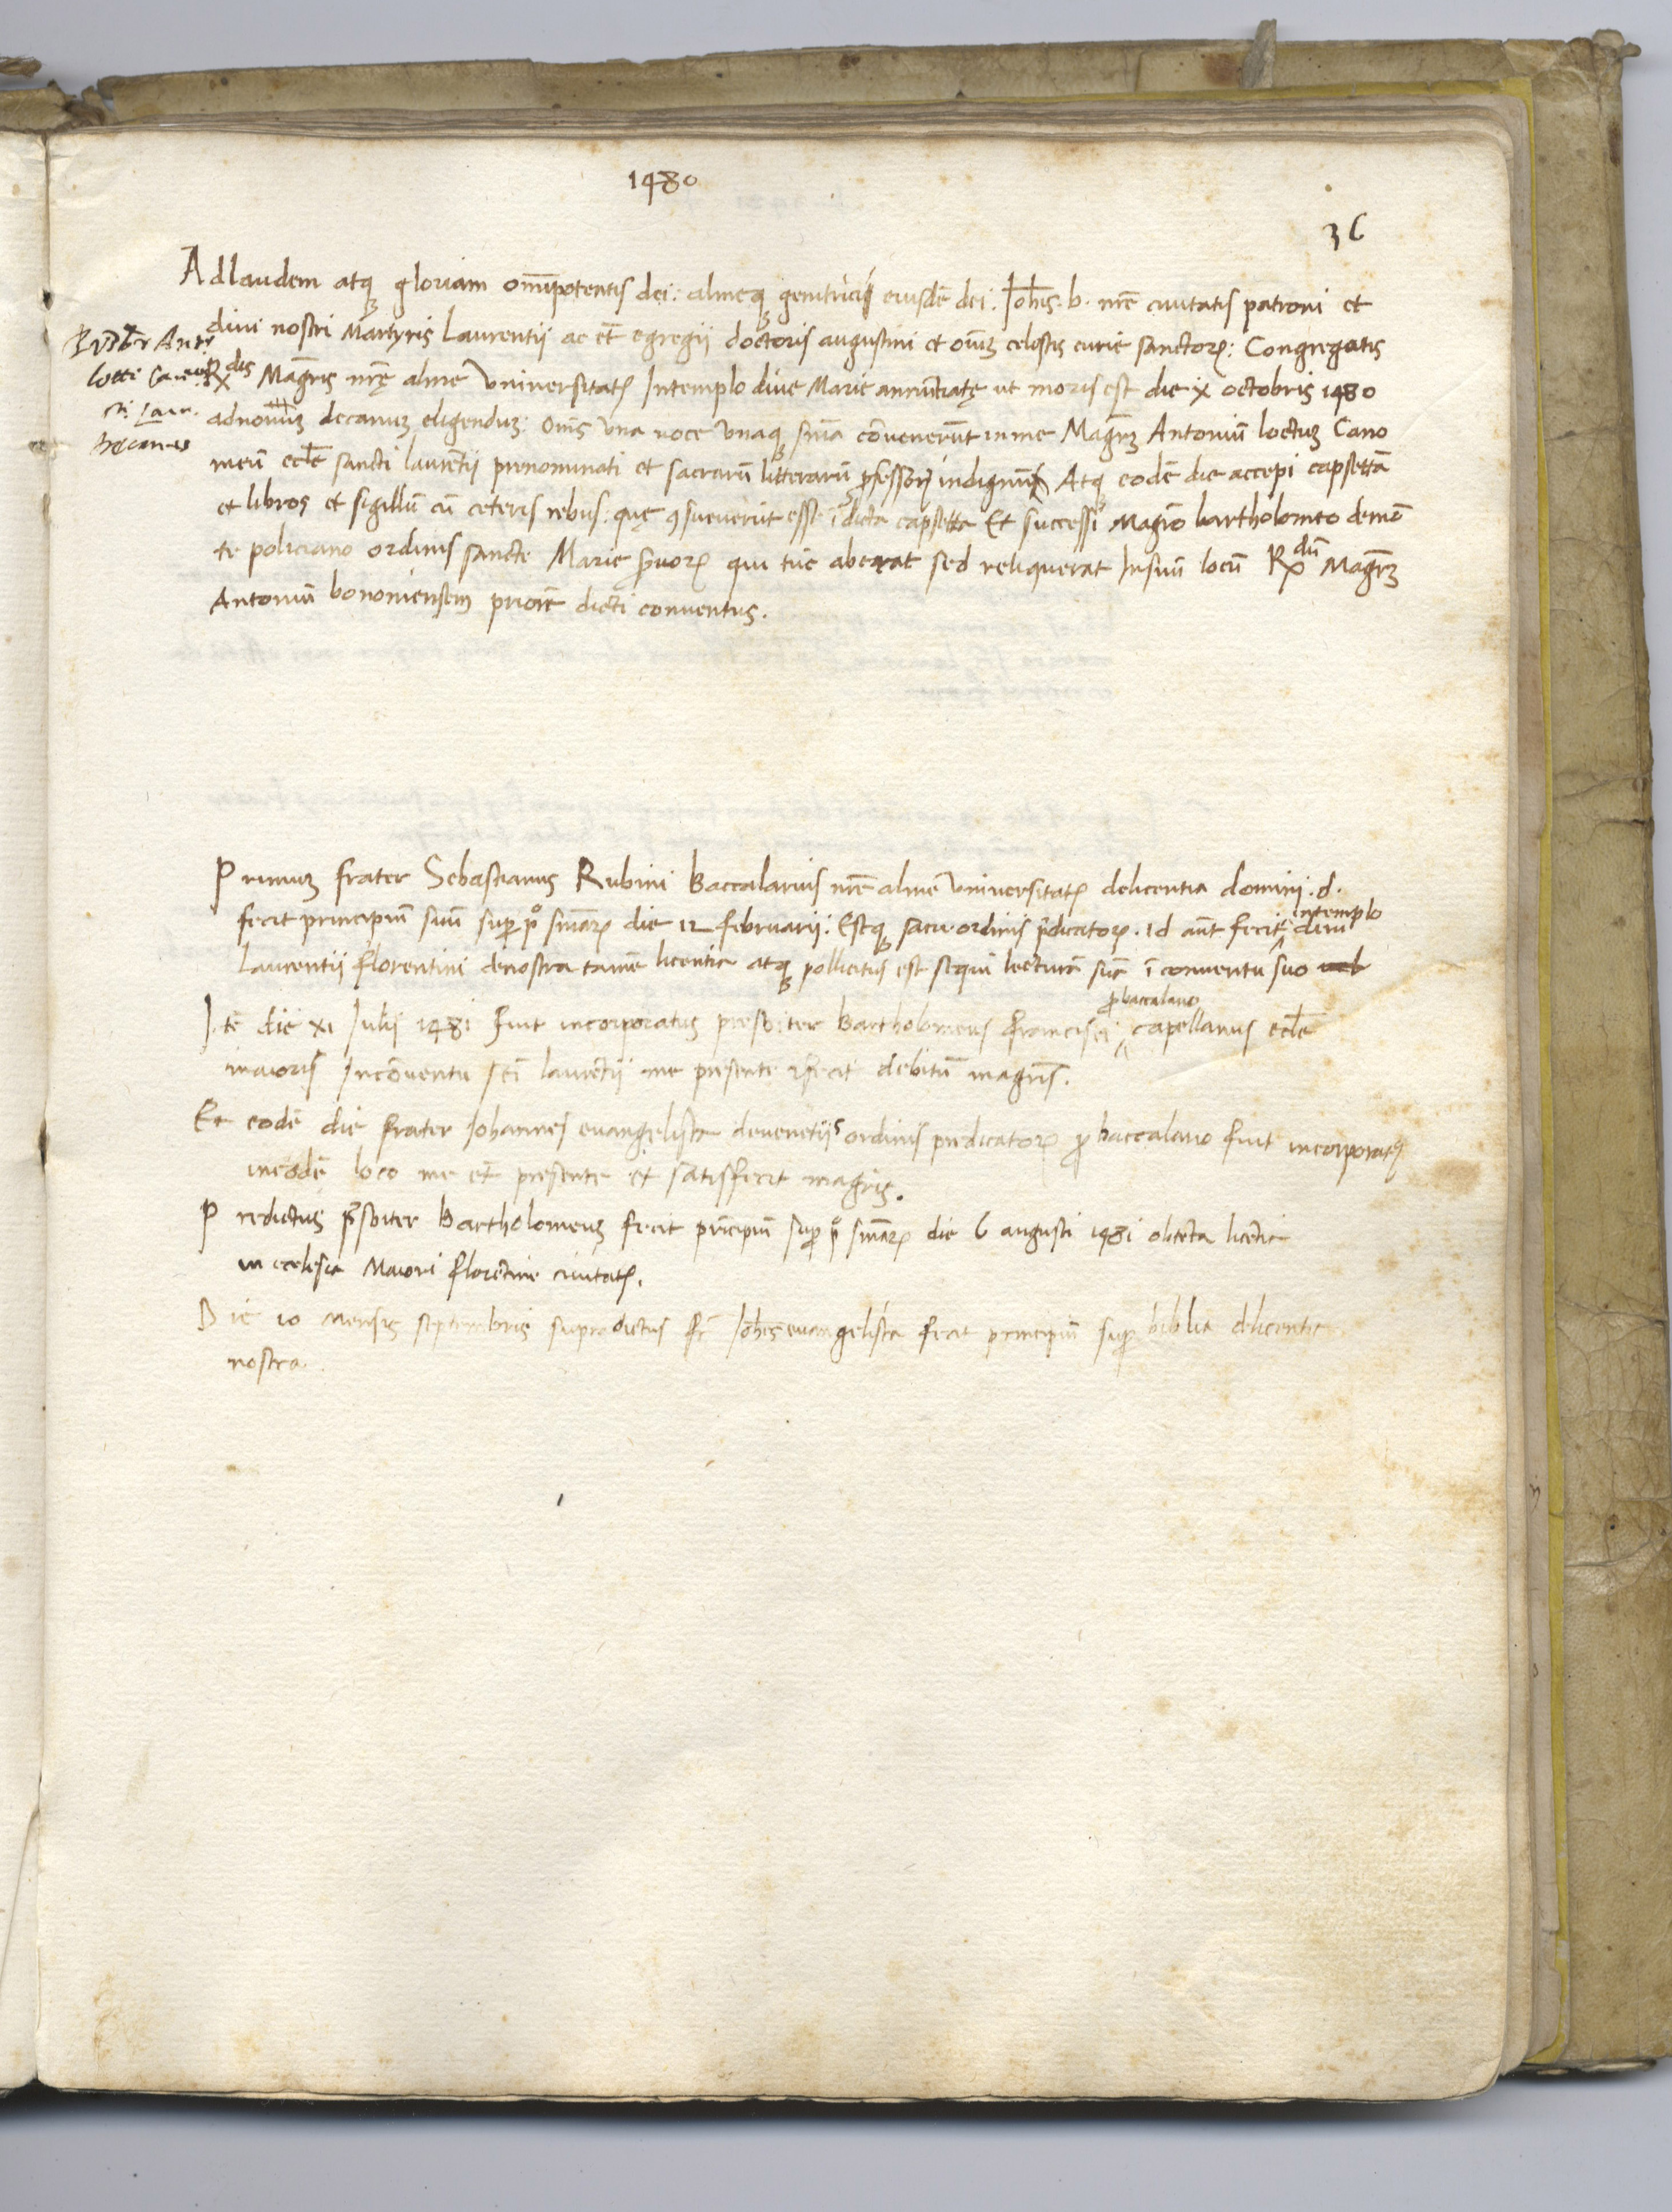 1480
36
Ad laudem atq gloriam omīpotentis dei: almeq genitricis eiusdē dei: Iohis. b. nrē ciuitatis patroni et
diui nostri Martyris Laurentii ac et̄ egregii doctoris augustini et oīuȝ celestis curie sanctoꝝ: Congregatis
Rdis Magr̄is nrę alme Vniuersitatꝭ Intemplo diue Marie annūtiatę ut moris est die x octobris 1480
ad nouuȝ decanuȝ eligenduȝ: Oīns Vna uoce Vnaq snīa cōuenerūt in me Magr̄ȝ Antoniū loctuȝ Cano
Lotti Canonici
sti Laur.
Decanus
nicū eclē sancti laurētij prenominati et sacrarū litterarū ꝓfessorē indignū Atq eodē die accepi capsettā
et libros et sigillū cū ceteris rebus: quę ꝯsueuerūt esse ī dicta capsetta Et successi Magr̄o bartholomeo de mō
te policiano ordinis sancte Marie ẜuoꝝ qui tūc aberat sed reliquerat In suū locū Rdū Magr̄ȝ
Antoniū bononiensem priorē dicti conuentus.
Primuȝ frater Sebastianus Rubini Baccalarius nrē alme Vniuersitatꝭ de licentia domini. d.
fecit principiū suū suꝑ pº snīaꝝ die 12 februarii: Estq sacri ordinis p̄dicatoꝝ. Id aūt fecit in templo diui
Laurentii florentini de nostra tamē licentia atq pollicitus est sequi lecturā suā ī conuentu suo uel
Itē die xi Iulij 1481 fuit incorporatus presbiter Bartholomeus francisci ꝓ baccalario capellanus eclē
maioris In cōuentu sci laurētij me presente et fecit debitū magr̄is.
Et eodē die frater Iohannes euangelista de uenetiis ordinis predicatoꝝ ꝓ baccalario fuit incorporatꝰ
in eodē loco me et̄ presente et satisfecit magr̄is.
Predictus p̄sbiter Bartholomeus fecit prīcipiū suꝑ pº snīaꝝ die 6 augusti 1481 obtēta licētia
in ecclesia Maiori florētine ciuitatꝭ.
Die 10 mensis septembris supradictus fr̄ Iohes euangelista fecit principiū suꝑ biblia de licentia
nostra.